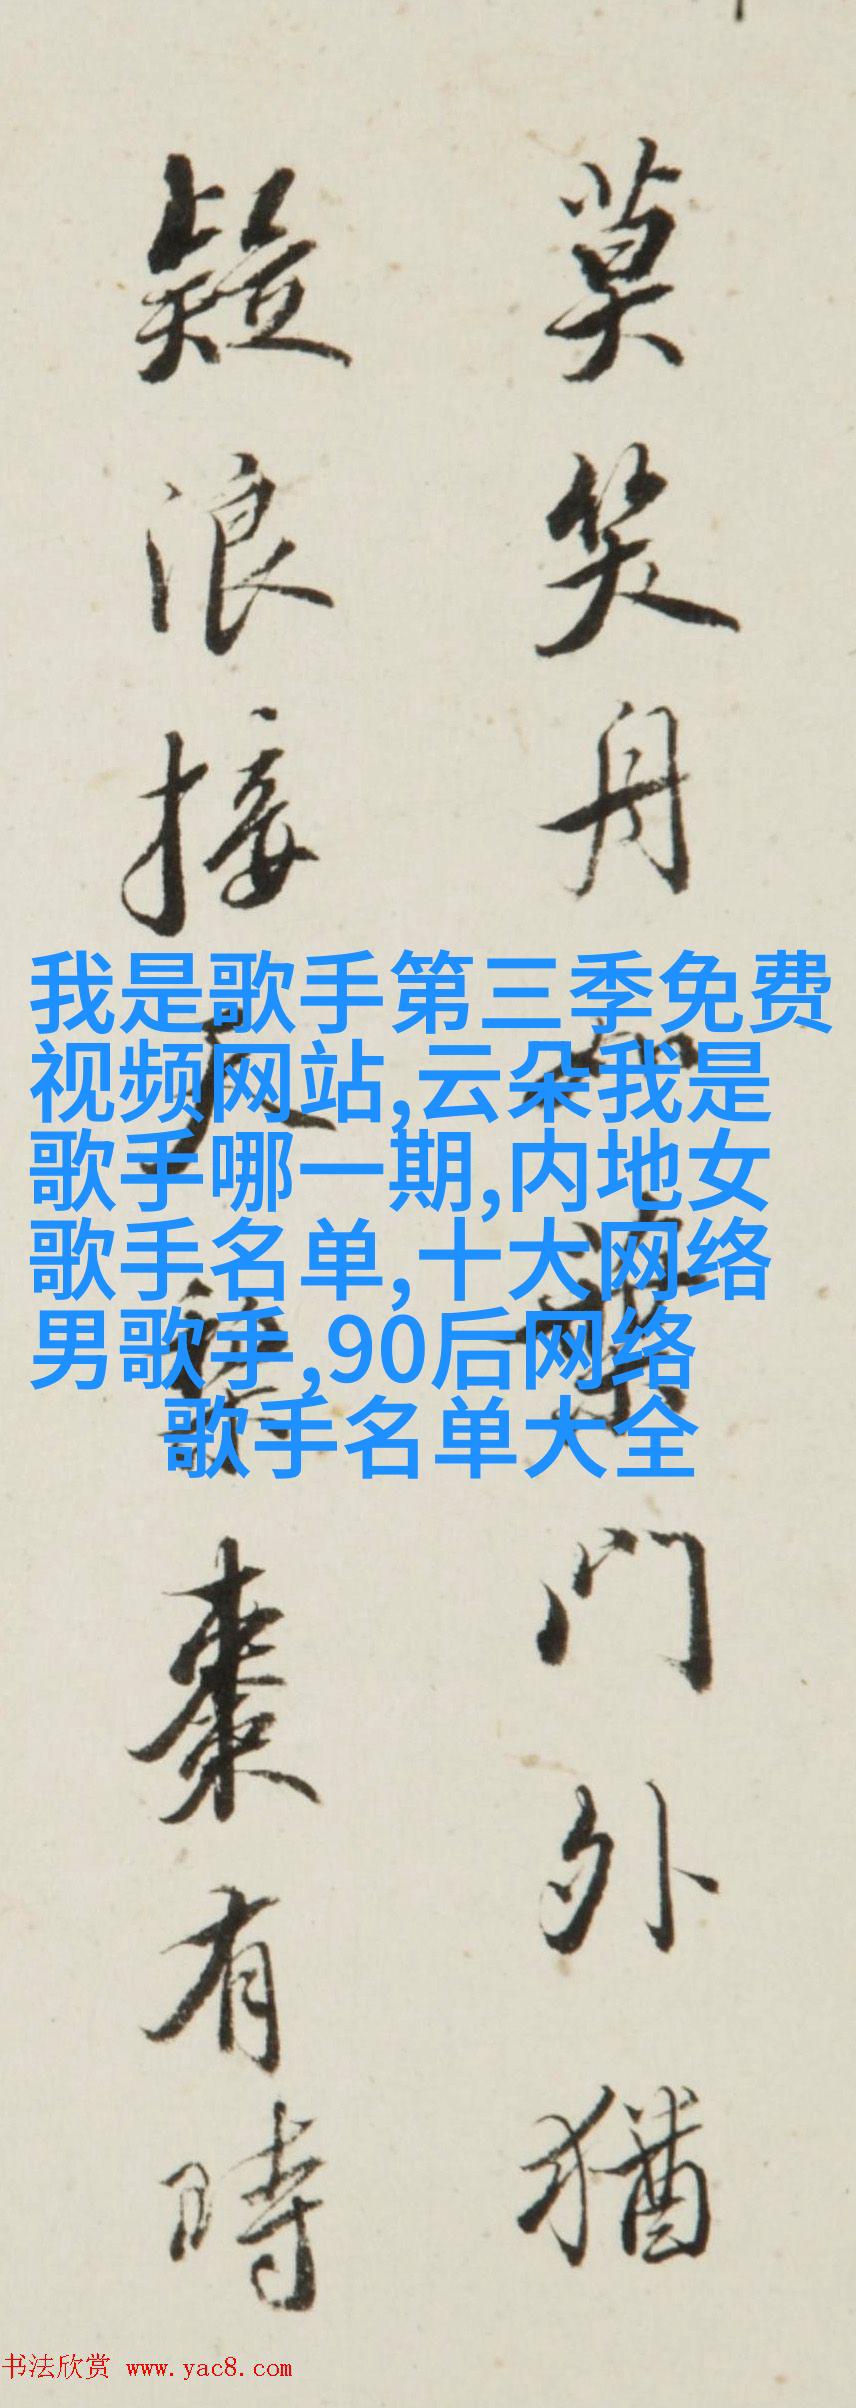 莫笑舟葉門外猶
疑浪接天棗有時
我是歌手第三季免费
视频网站,云朵我是
歌手哪一期,内地女
歌手名单,十大网络
男歌手,90后网络
歌手名单大全
书法欣赏 www.yac8.com